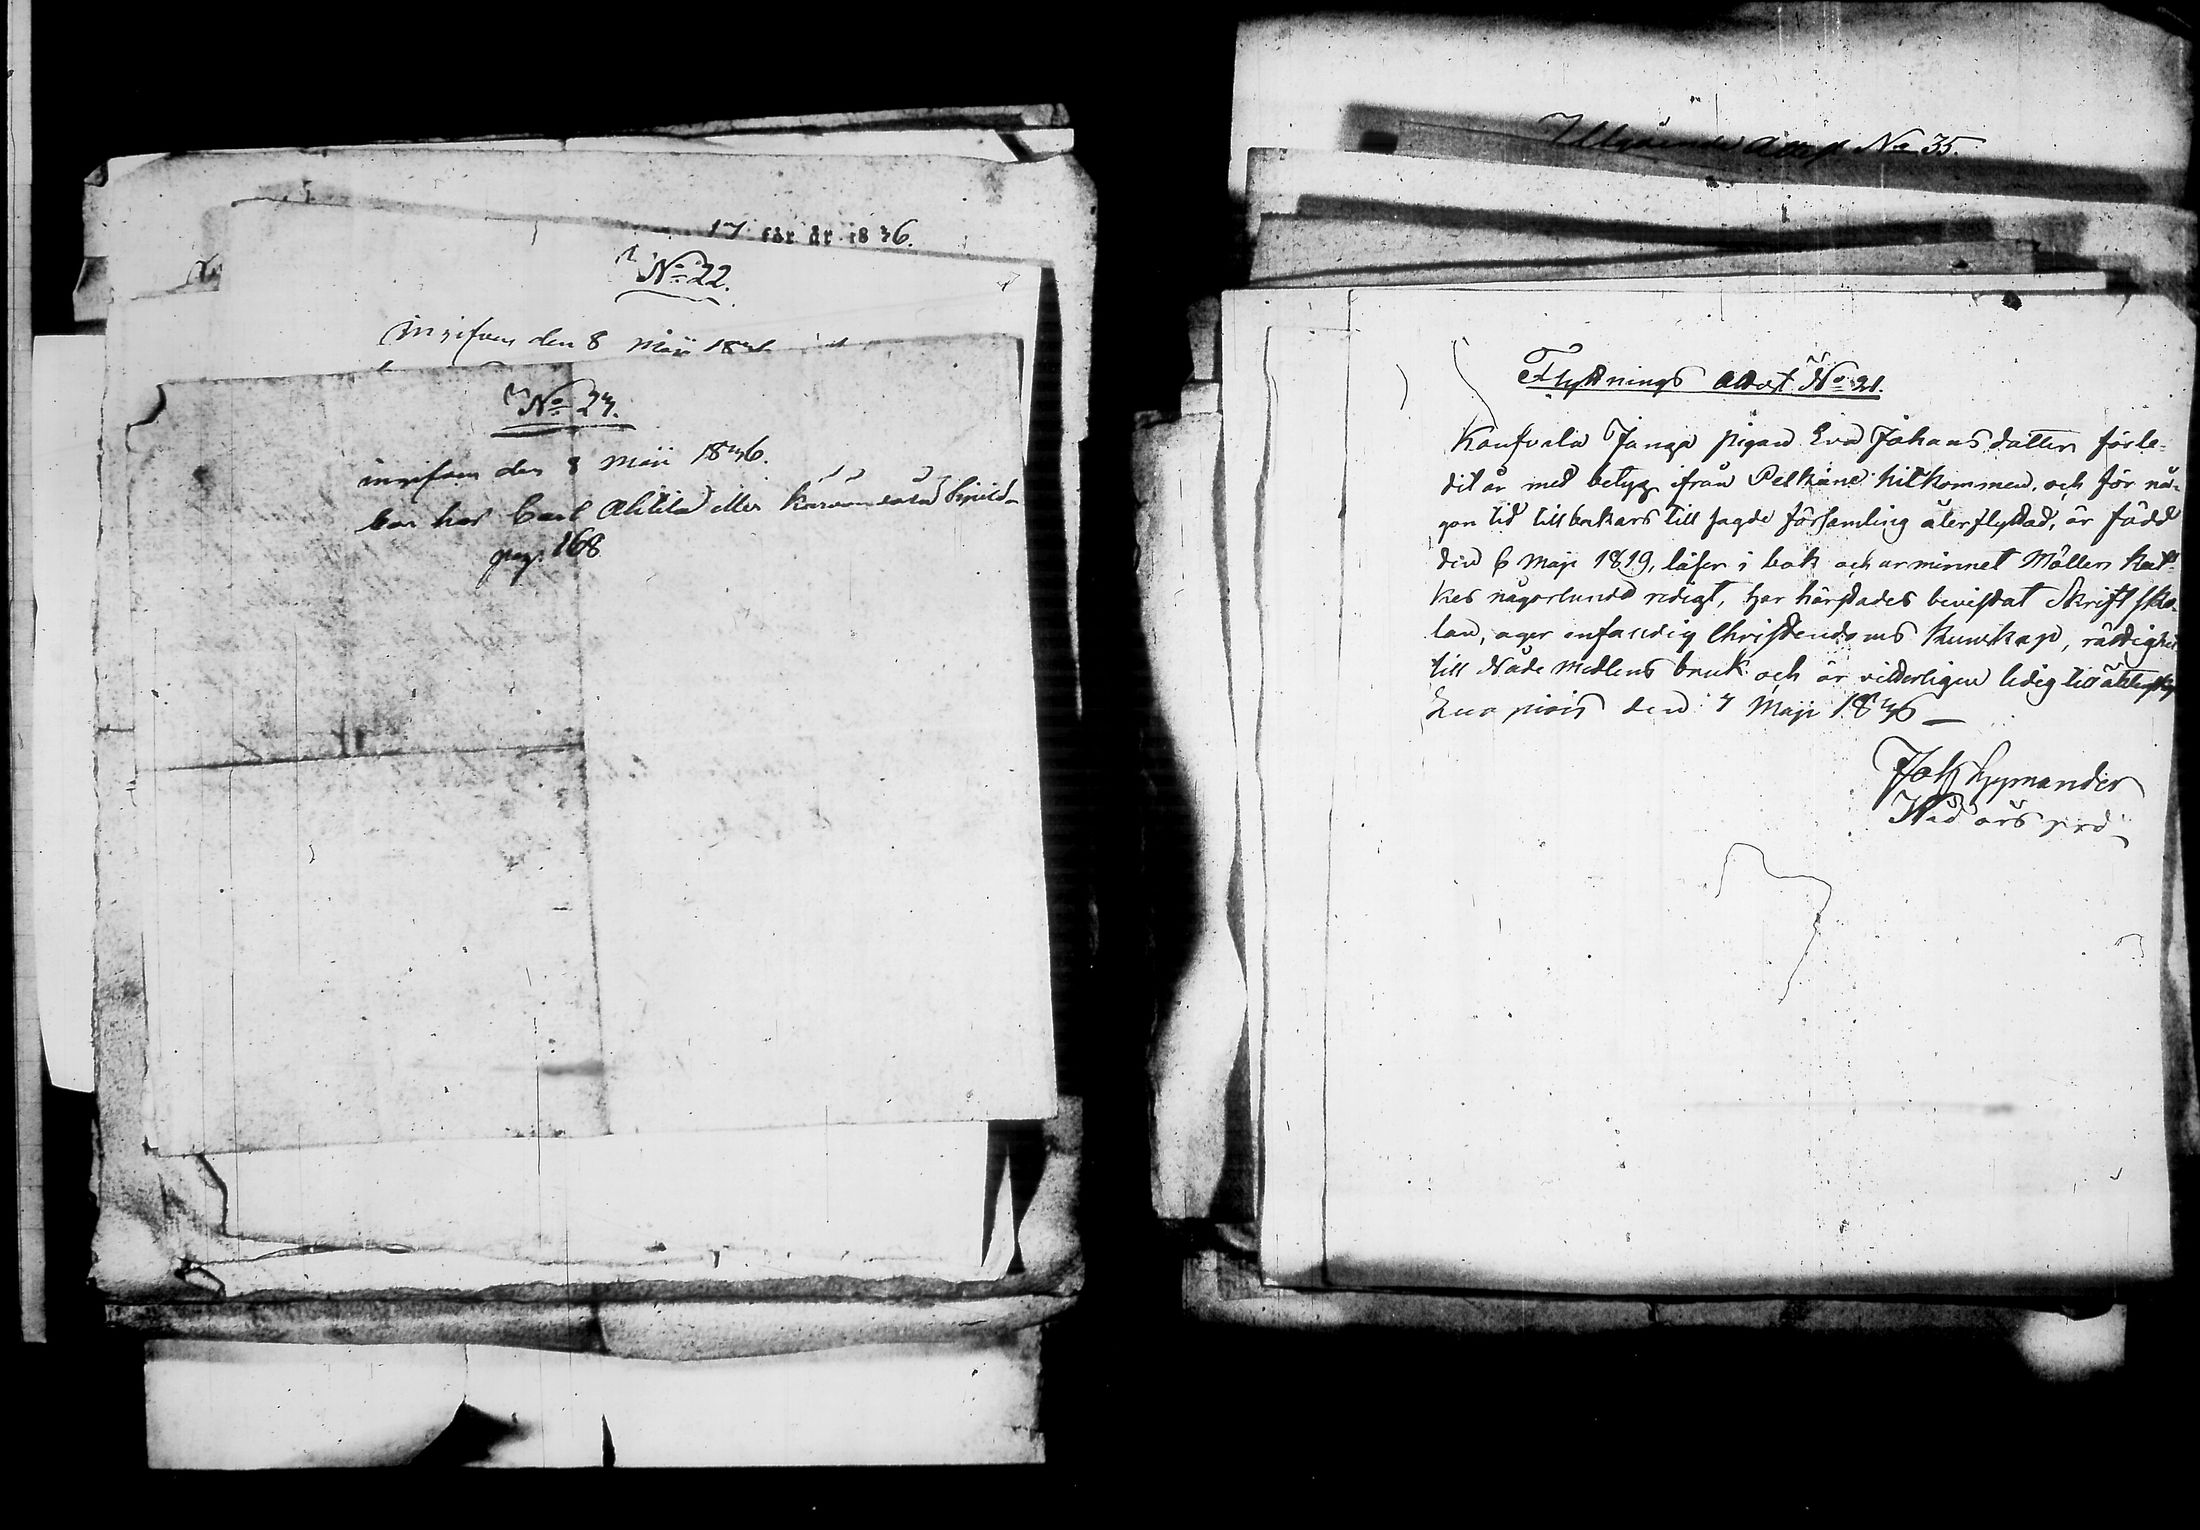 17 för år 1836.
N:o 22.
ingifven den 8 Maii
N:o 23.
ingifven den 8 Maii 1836.
bor hos Carl Ahtila eller
pag. 168
Utgående Attest No 35.
Flyttnings Attest N:o 21.
Jungf pigan Eva Johansdotter förle-
dit år med betyg ifrån Pelkäne hitkommen, och för nå-
gon tid tillbakars till sagde församling återflyttad, är född
den 6 Maji 1819, läser i bok och ur minnet Möllers Kat-
kes någorlunda redigt, har härstädes bevistat Skriftsko-
lan, äger enfaldig Christendoms Kunskap, rättighet
till Nåde Medlens bruk och är vitterligen ledig till äktenskap
den 7 Maji 1836
Joh Lymander